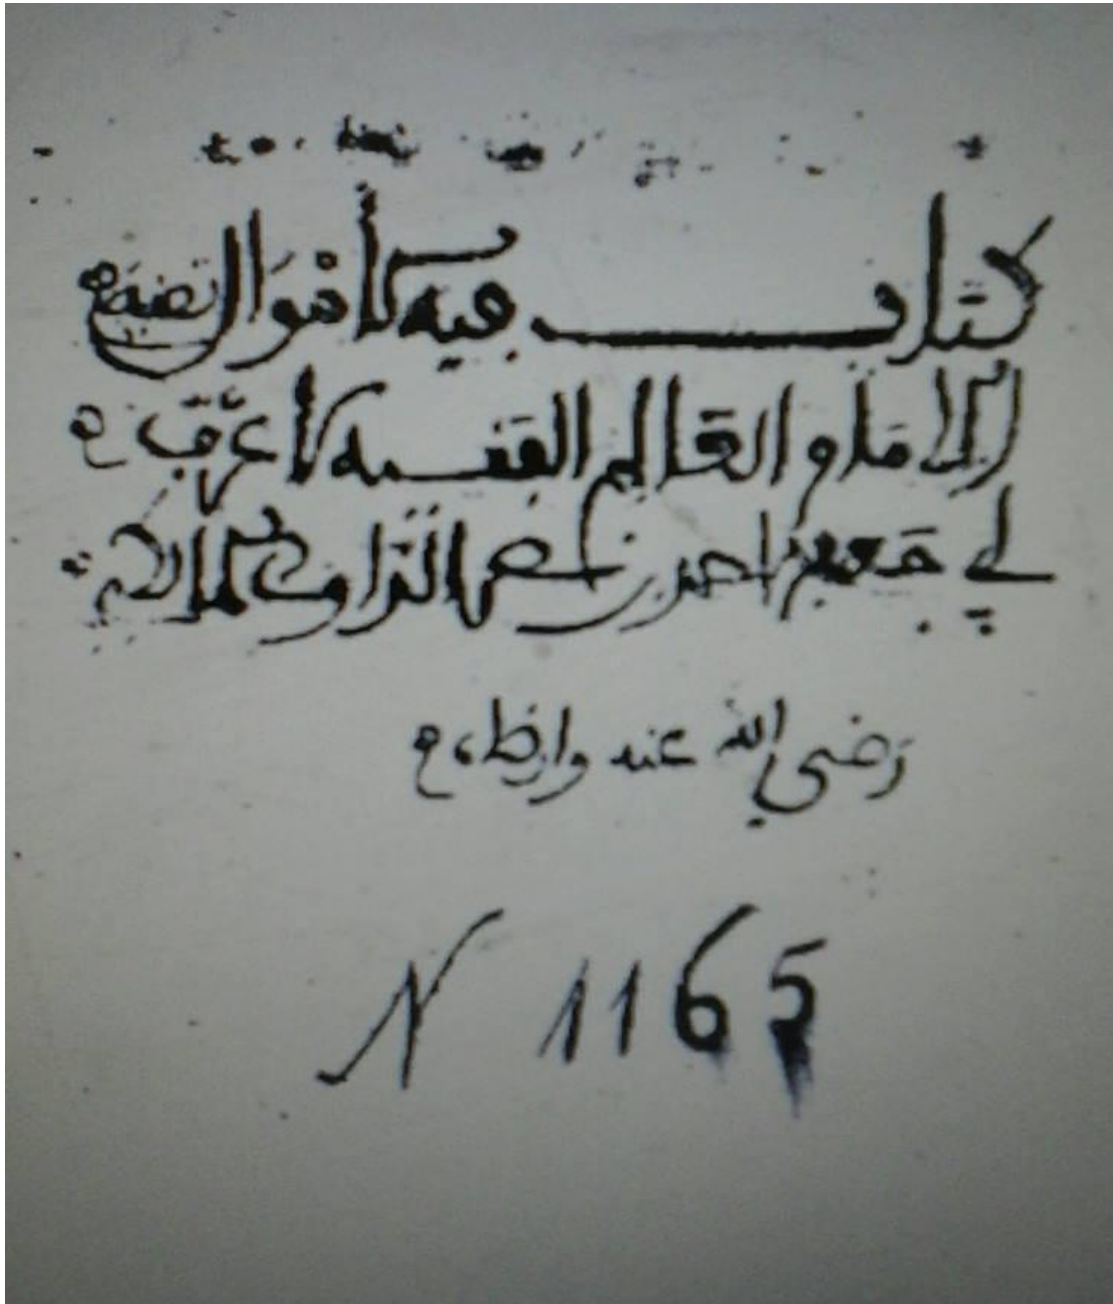 كتاب فيه الأموال تصنيف
الإمام العالم الفقيه الأعرف
أبي جعفر أحمد بن نصر الداودي المالكي
رضي الله عنه وارضاه
N 1165